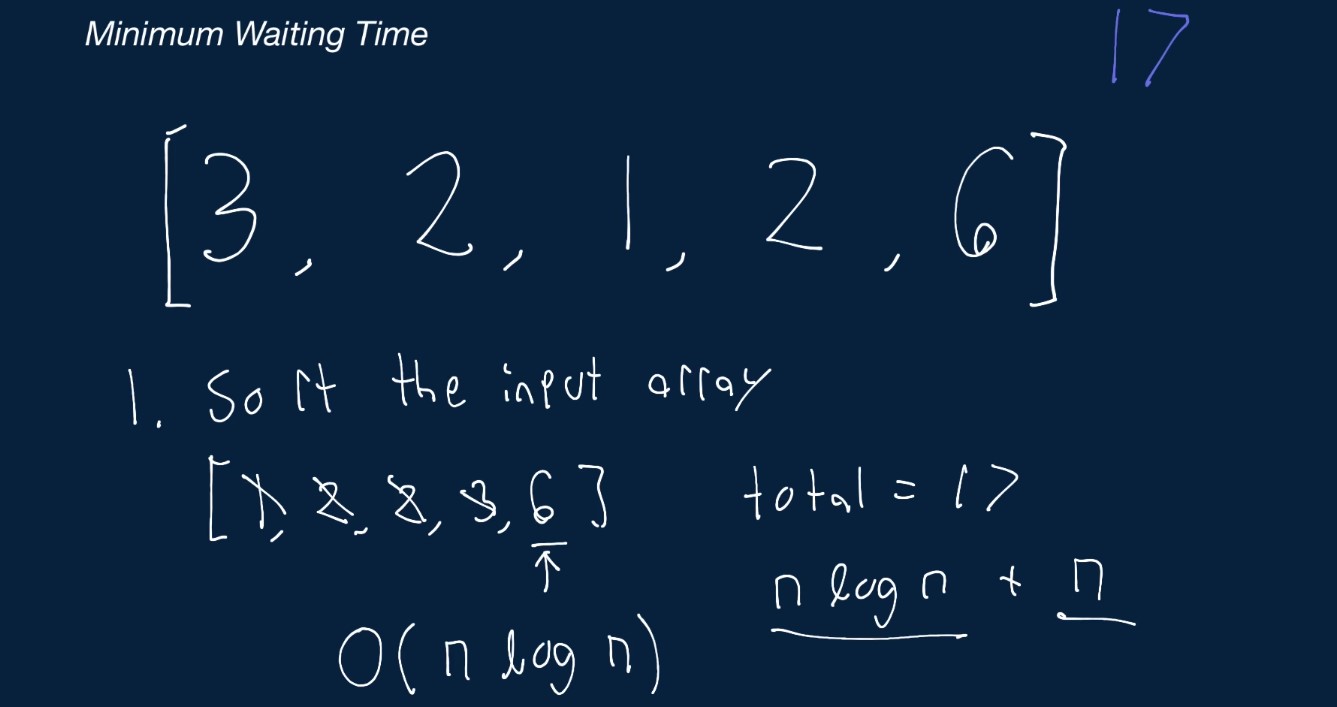 Minimum Waiting Time
17
[3, 2, 1, 2, 6]
1. Sort the input array
[1, 2, 2, 3, 6] total = 17
n log n + n
O(n log n)